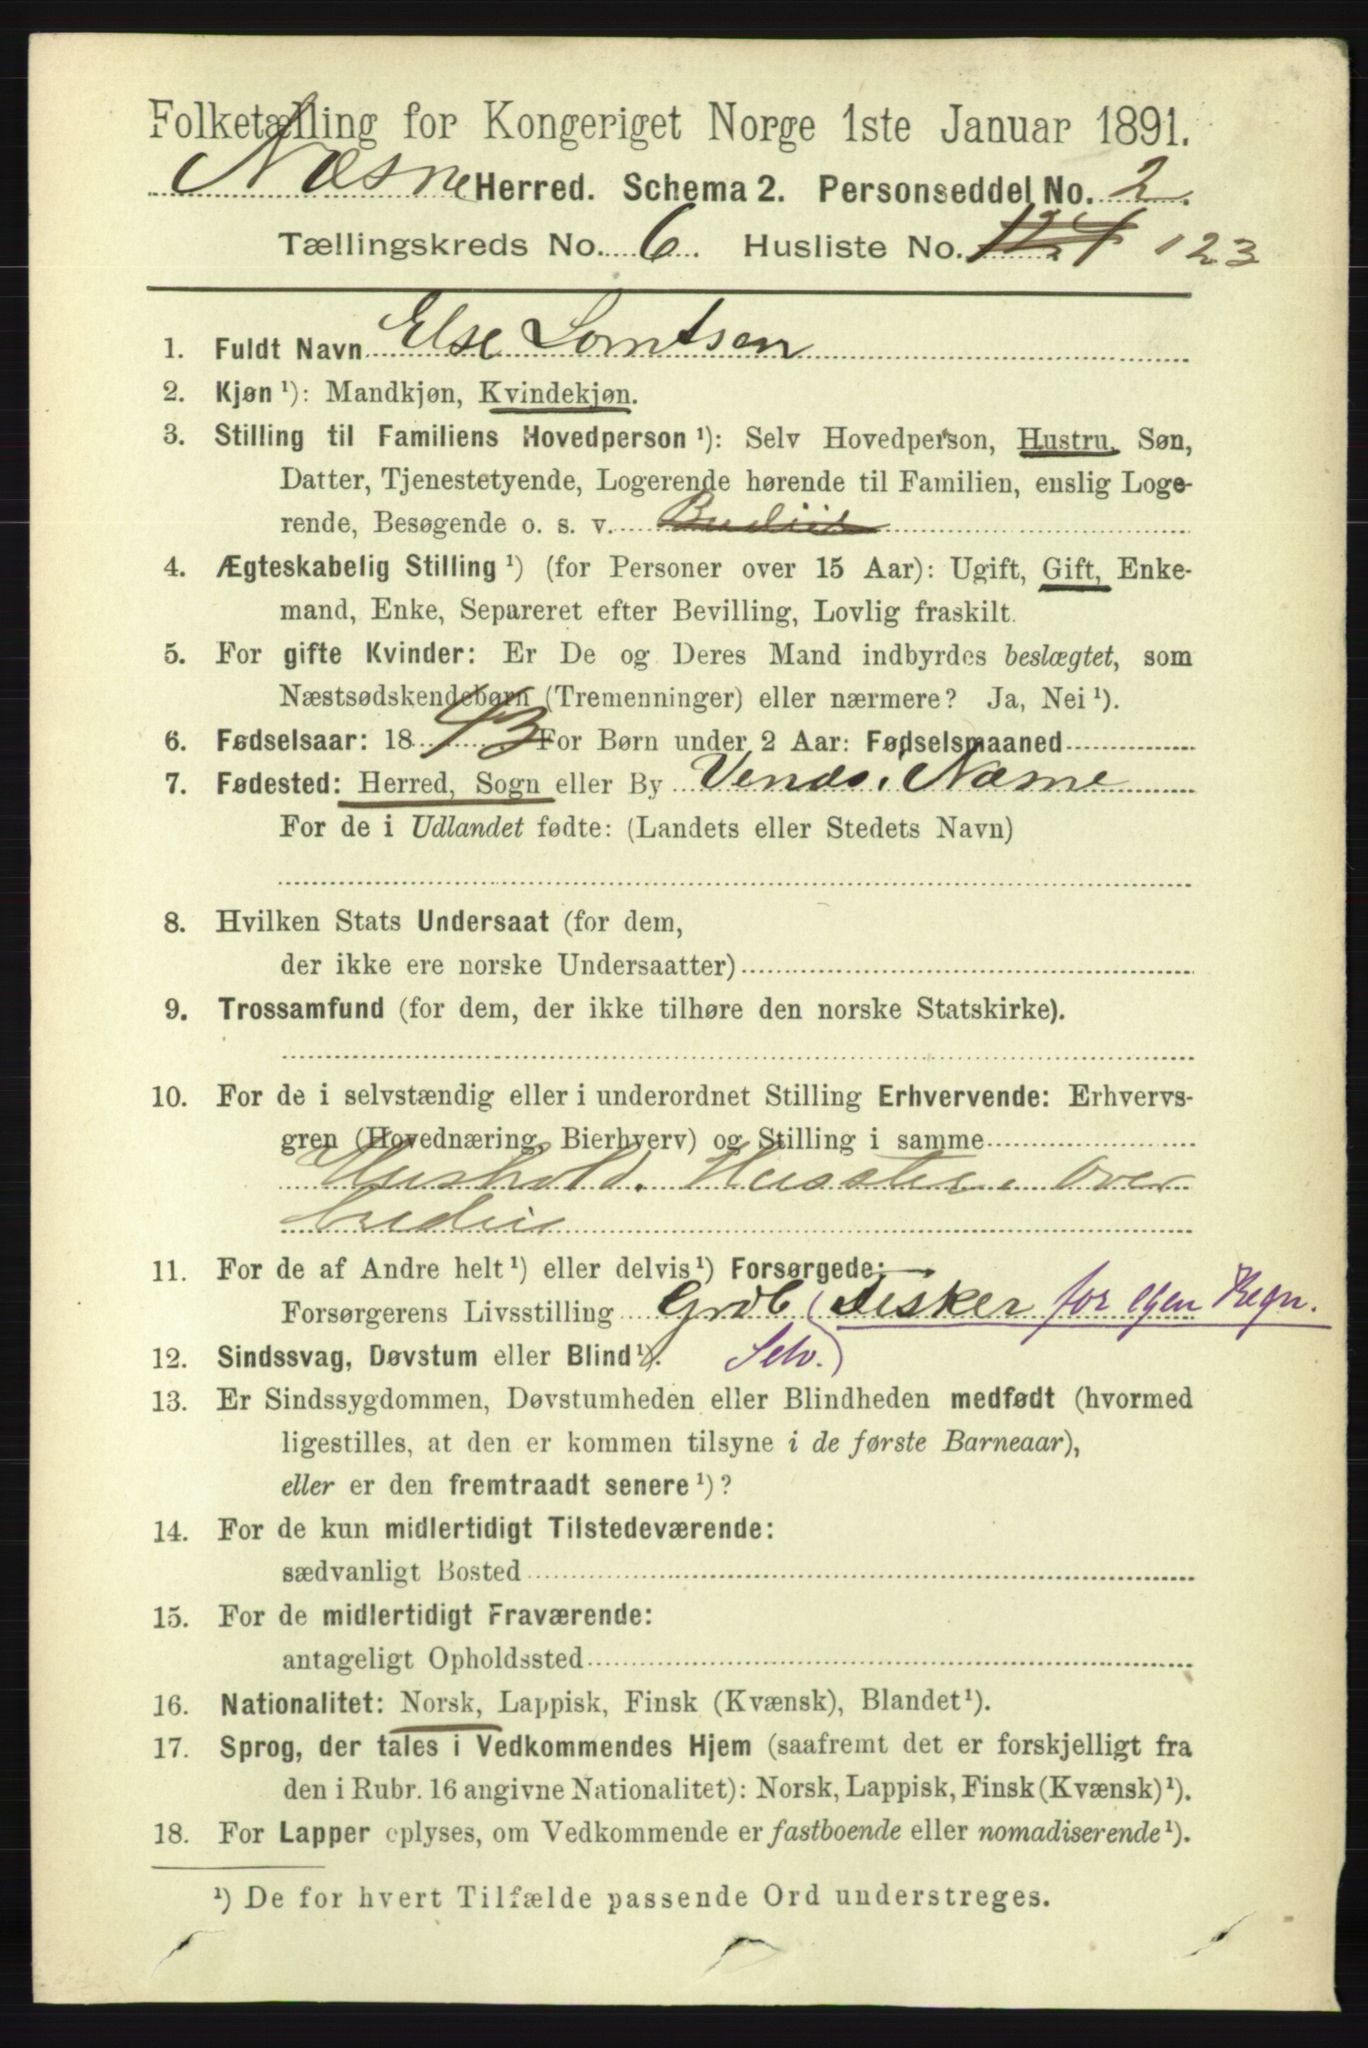 Folketælling for Kongeriget Norge 1ste Januar 1891.
Næsne Herred. Schema 2. Personseddel No. 2.
Tællingskreds No. 6. Husliste No. 124 123
1. Fuldt Navn Else Lorntsen
2. Kjøn ¹): Mandkjøn, Kvindekjøn.
3. Stilling til Familiens Hovedperson ¹): Selv Hovedperson, Hustru, Søn,
Datter, Tjenestetyende, Logerende hørende til Familien, enslig Loge-
rende, Besøgende o. s. v.
4. Ægteskabelig Stilling ¹) (for Personer over 15 Aar): Ugift, Gift, Enke-
mand, Enke, Separeret efter Bevilling, Lovlig fraskilt.
5. For gifte Kvinder: Er De og Deres Mand indbyrdes beslægtet, som
Næstsødskendebørn (Tremenninger) eller nærmere? Ja, Nei ¹).
6. Fødselsaar: 1843 For Børn under 2 Aar: Fødselsmaaned
7. Fødested: Herred, Sogn eller By Næsne
For de i Udlandet fødte: (Landets eller Stedets Navn)
8. Hvilken Stats Undersaat (for dem,
der ikke ere norske Undersaatter)
9. Trossamfund (for dem, der ikke tilhøre den norske Statskirke).
10. For de i selvstændig eller i underordnet Stilling Erhvervende: Erhvervs-
gren (Hovednæring, Bierhverv) og Stilling i samme
Hushold. over
11. For de af Andre helt ¹) eller delvis ¹) Forsørgede:
Forsørgerens Livsstilling Grdb (Fisker for egen Regn.
12. Sindssvag, Døvstum eller Blind ¹). Selv.)
13. Er Sindssygdommen, Døvstumheden eller Blindheden medfødt (hvormed
ligestilles, at den er kommen tilsyne i de første Barneaar),
eller er den fremtraadt senere ¹)?
14. For de kun midlertidigt Tilstedeværende:
sædvanligt Bosted
15. For de midlertidigt Fraværende:
antageligt Opholdssted
16. Nationalitet: Norsk, Lappisk, Finsk (Kvænsk), Blandet ¹).
17. Sprog, der tales i Vedkommendes Hjem (saafremt det er forskjelligt fra
den i Rubr. 16 angivne Nationalitet): Norsk, Lappisk, Finsk (Kvænsk) ¹).
18. For Lapper oplyses, om Vedkommende er fastboende eller nomadiserende ¹).
¹) De for hvert Tilfælde passende Ord understreges.